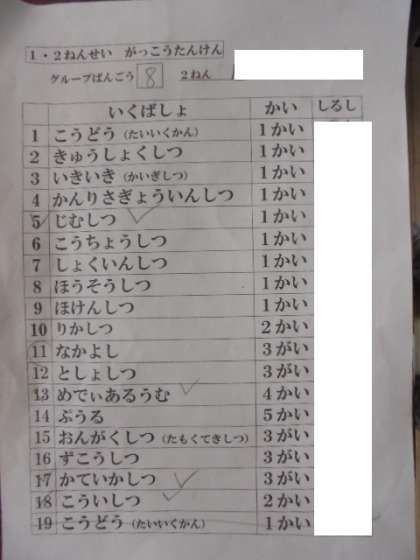 1・2ねんせい がっこうたんけん
グループばんごう 8 2ねん
いくばしょ かい しるし
1 こうどう(たいいくかん) 1かい
2 きゅうしょくしつ 1かい
3 いきいき(かいぎしつ) 1かい
4 かんりさぎょういんしつ 1かい
5 じむしつ 1かい
6 こうちょうしつ 1かい
7 しょくいんしつ 1かい
8 ほうそうしつ 1かい
9 ほけんしつ 1かい
10 りかしつ 2かい
11 なかよし 3がい
12 としょしつ 3がい
13 めでぃあるうむ 4かい
14 ぷうる 5かい
15 おんがくしつ(たもくてきしつ) 3がい
16 ずこうしつ 3がい
17 かていかしつ 3がい
18 こういしつ 2かい
19 こうどう(たいいくかん) 1かい